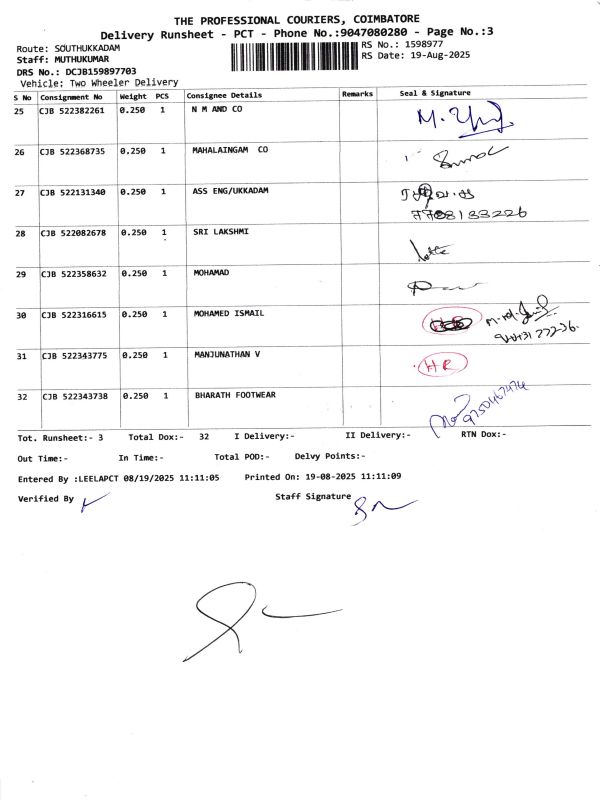 THE PROFESSIONAL COURIERS, COIMBATORE
Delivery Runsheet - PCT - Phone No.:9047080280 - Page No.:3
Route: SOUTHUKKADAM
RS No.: 1598977
Staff: MUTHUKUMAR
RS Date: 19-Aug-2025
DRS No.: DCJB159897703
Vehicle: Two Wheeler Delivery
S No Consignment No Weight PCS Consignee Details Remarks Seal & Signature
25 CJB 522382261 0.250 1 N M AND CO
26 CJB 522368735 0.250 1 MAHALAINGAM CO
27 CJB 522131340 0.250 1 ASS ENG/UKKADAM
7708133226
28 CJB 522082678 0.250 1 SRI LAKSHMI
29 CJB 522358632 0.250 1 MOHAMAD
30 CJB 522316615 0.250 1 MOHAMED ISMAIL
31 CJB 522343775 0.250 1 MANJUNATHAN V HR
32 CJB 522343738 0.250 1 BHARATH FOOTWEAR 9750467474
Tot. Runsheet:- 3 Total Dox:- 32 I Delivery:- II Delivery:- RTN Dox:-
Out Time:- In Time:- Total POD:- Delvy Points:-
Entered By :LEELAPCT 08/19/2025 11:11:05 Printed On: 19-08-2025 11:11:09
Verified By Staff Signature